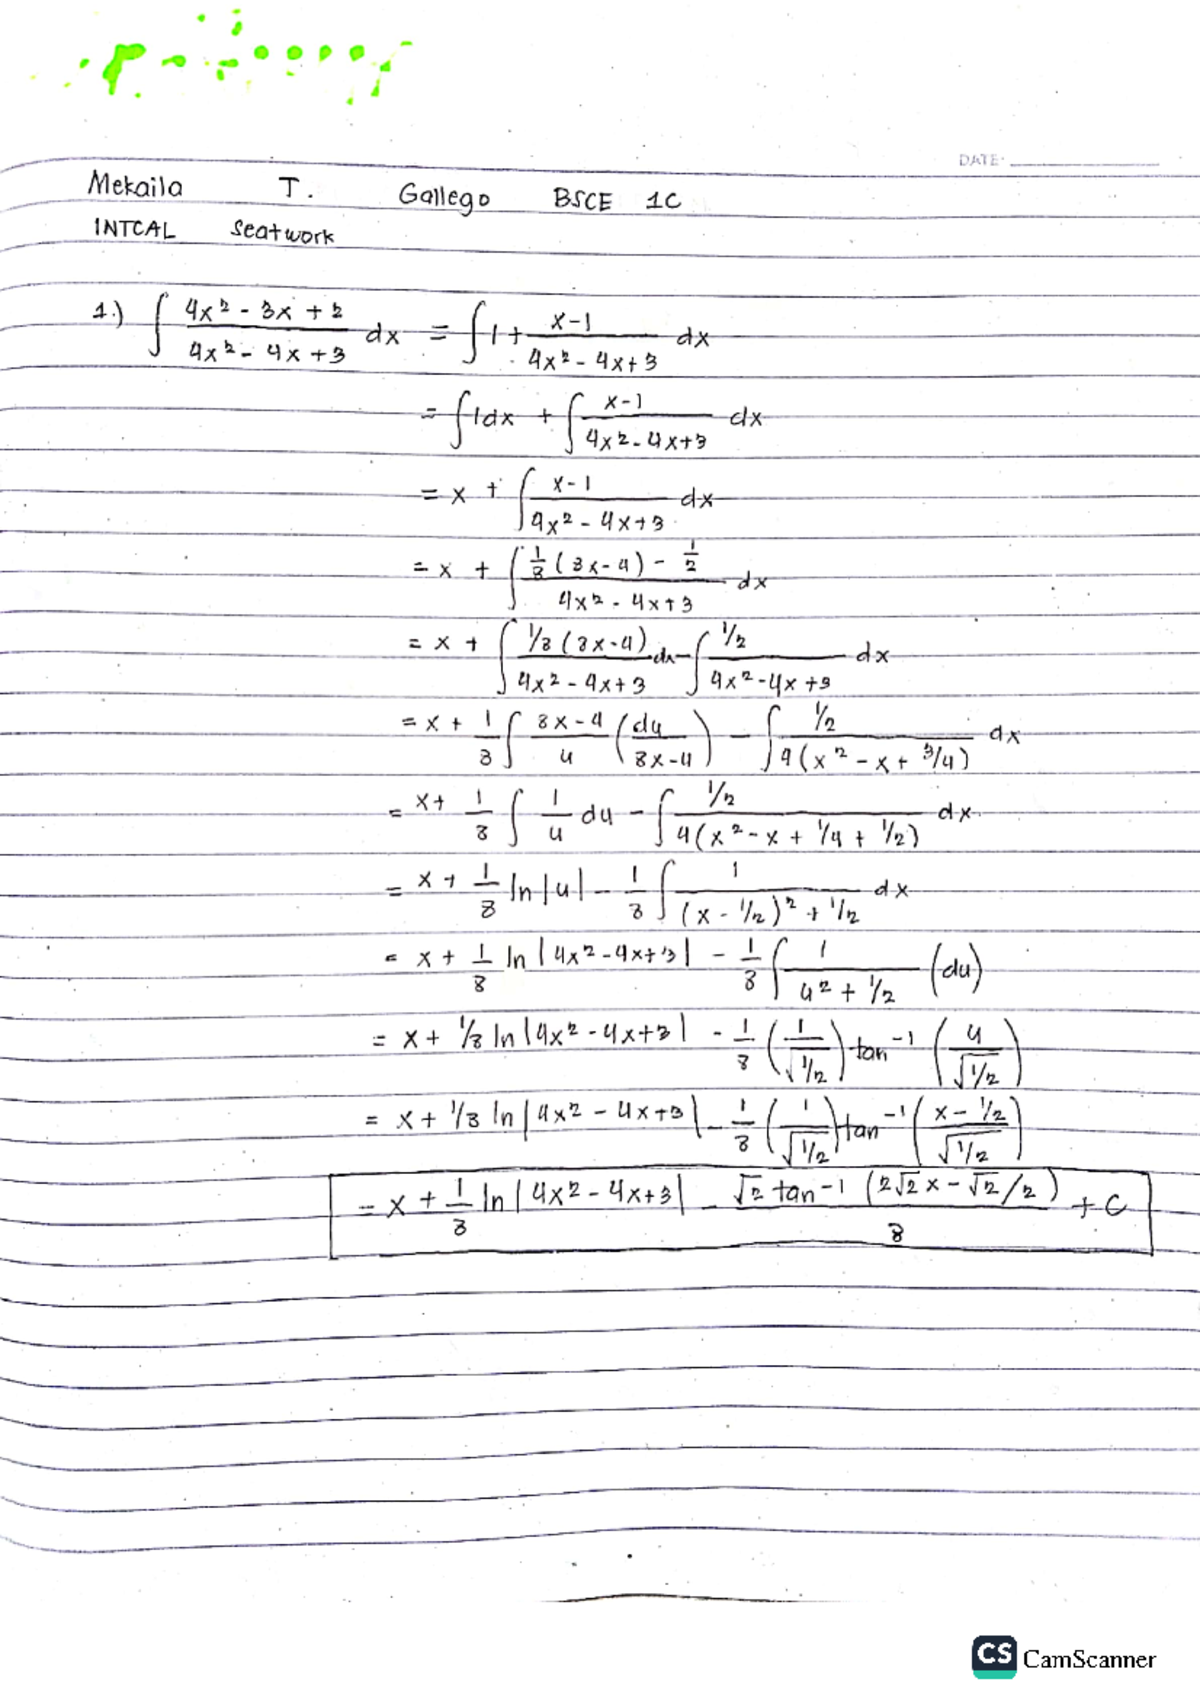 DATE:
Mekaila T. Gallego BSCE 1C
INTCAL Seatwork
1.) ∫ (4x² - 3x + 2)/(4x² - 4x + 3) dx = ∫ 1 + (x-1)/(4x² - 4x + 3) dx
= ∫ 1dx + ∫ (x-1)/(4x² - 4x + 3) dx
= x + ∫ (x-1)/(4x² - 4x + 3) dx
= x + ∫ (1/8 (8x - 4) - 1/2)/(4x² - 4x + 3) dx
= x + ∫ (1/8 (8x - 4))/(4x² - 4x + 3) dx - ∫ (1/2)/(4x² - 4x + 3) dx
= x + 1/8 ∫ (8x - 4)/u (du/(8x - 4)) - ∫ (1/2)/(4(x² - x + 3/4)) dx
= x + 1/8 ∫ 1/u du - ∫ (1/2)/(4(x² - x + 1/4 + 1/2)) dx
= x + 1/8 ln |u| - 1/8 ∫ 1/((x - 1/2)² + 1/2) dx
= x + 1/8 ln |4x² - 4x + 3| - 1/8 ∫ 1/(u² + 1/2) (du)
= x + 1/8 ln |4x² - 4x + 3| - 1/8 (1/√1/2) tan⁻¹ (u/√1/2)
= x + 1/8 ln |4x² - 4x + 3| - 1/8 (1/√1/2) tan⁻¹ ((x - 1/2)/√1/2)
= x + 1/8 ln |4x² - 4x + 3| - (√2 tan-1 (2√2 x - √2/2))/8 + C
CS CamScanner